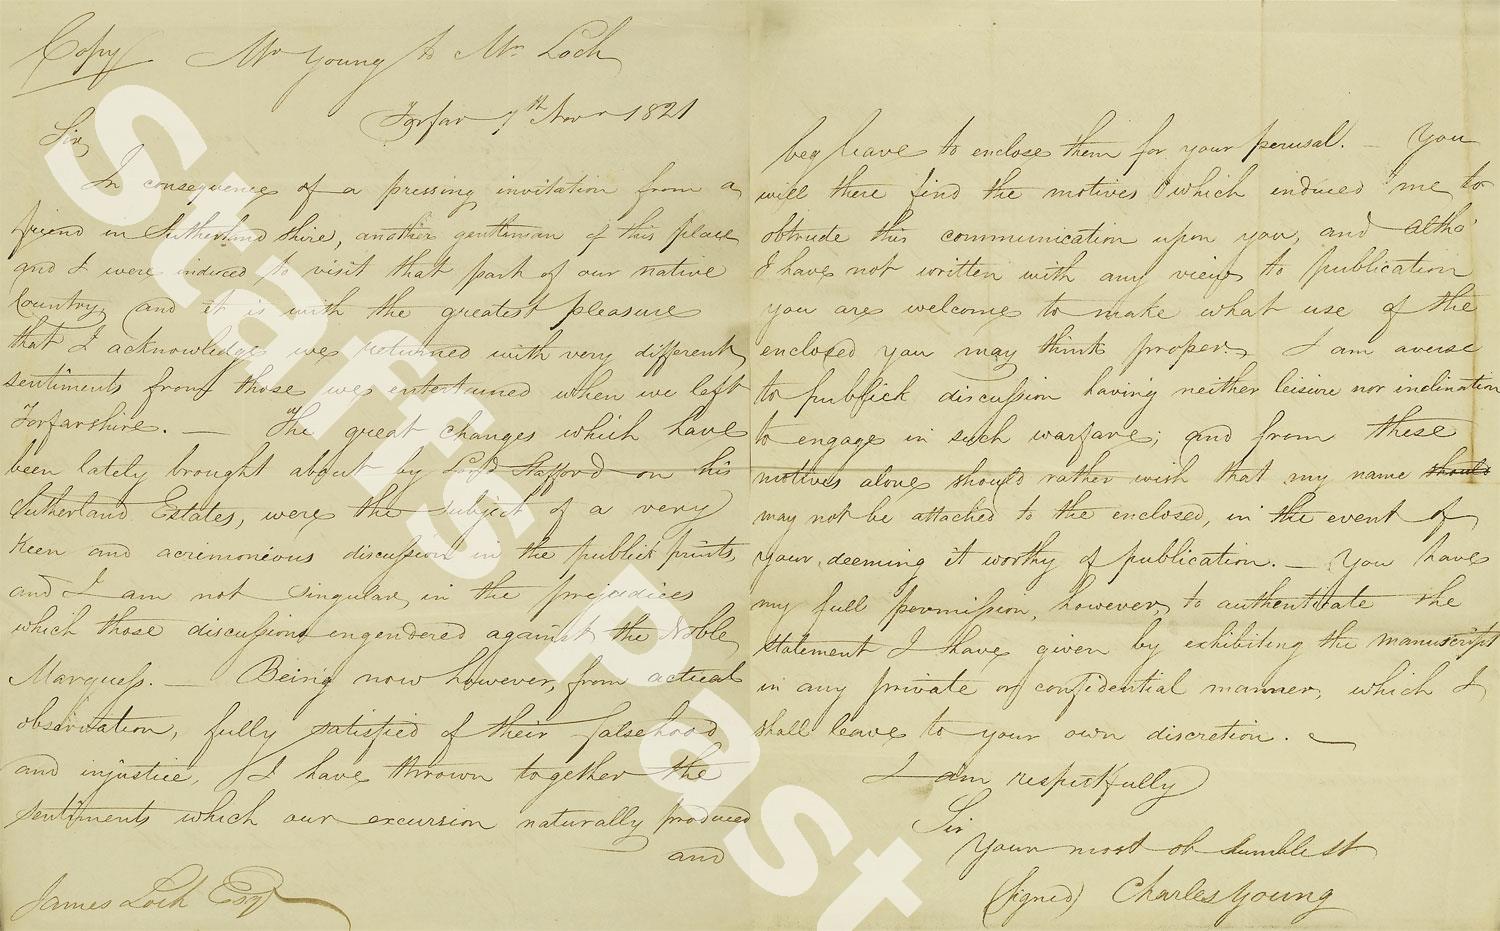 Copy Mr Young to Mr Loch
Forfar 7th Novr 1821
Sir
In consequence of a pressing invitation from a
friend in Sutherland shire, another gentleman of this place
and I were induced to visit that part of our native
Country, and it is with the greatest pleasure
that I acknowledge we returned with very different
sentiments from those we entertained when we left
Forfarshire. — The great changes which have
been lately brought about by Lord Stafford on his
Sutherland Estates, were the subject of a very
keen and acrimonious discussion in the publick prints,
and I am not singular, in the prejudices
which those discussions engendered against the Noble
Marquess. — Being now however, from actual
observation, fully satisfied of their falsehood
and injustice, I have thrown together the
sentiments which our excursion naturally produced
and
James Loch Esqr
beg leave to enclose them for your perusal. — You
will there find the motives which induced me to
obtrude this communication upon you, and altho'
I have not written with any view to publication
you are welcome to make what use of the
enclosed you may think proper. I am averse
to publick discussion having neither leisure nor inclination
to engage in such warfare; and from these
motives alone should rather wish that my name should
may not be attached to the enclosed, in the event of
your deeming it worthy of publication. — You have
my full permission, however, to authenticate the
statement I have given by exhibiting the manuscript
in any private or confidential manner, which I
shall leave to your own discretion.
I am respectfully
Sir
Your most ob humble st
(signed) Charles Young
Staffs Past